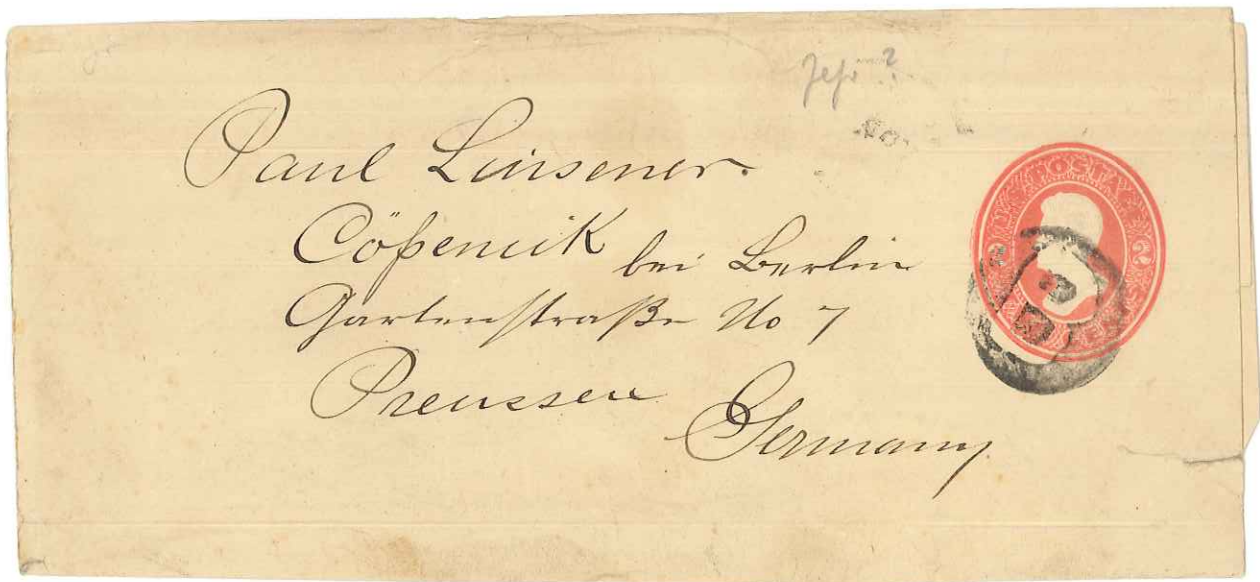 Paul Linsener.
Cöpenick bei Berlin
Gartenstraße No 7
Preussen
Germany
U.S. POSTAGE
2
2
CENTS